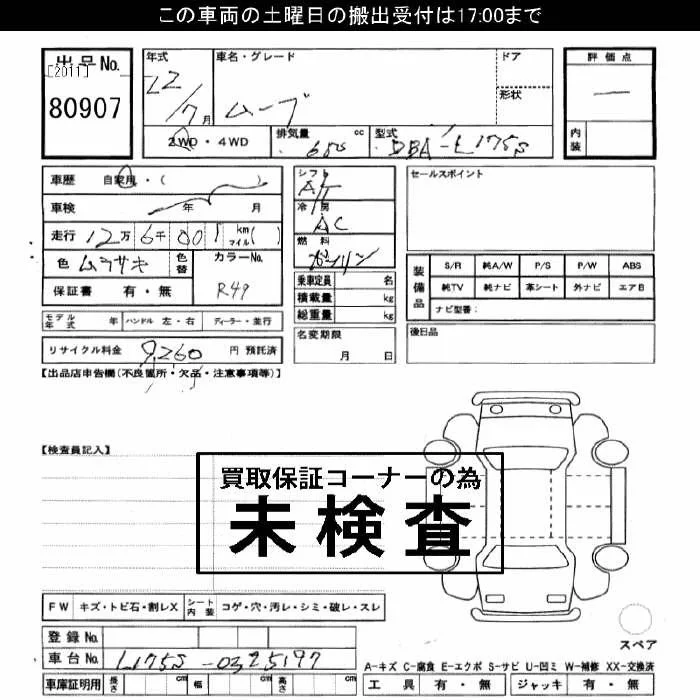 この車両の土曜日の搬出受付は17:00まで
出品No.
[2011]
80907
年式 22/7月
車名・グレード ムーブ
ドア
形状
評価点
内装
2WD・4WD
排気量 650 cc
型式 DBA-L175S
車歴 自家用・( )
車検 年 月
走行 12万6千001 km マイル( )
色 ムラサキ 色替 カラーNo. R49
保証書 有・無
シフト AT
冷房 AC
燃料 ガソリン
乗車定員 名
積載量 kg
総重量 kg
セールスポイント
装備品
S/R 純A/W P/S P/W ABS
純TV 純ナビ 革シート 外ナビ エアB
ナビ型番:
モデル年式 年 ハンドル 左・右 ディーラー・並行
名変期限 月 日
後日品
リサイクル料金 9,260 円 預託済
【出品店申告欄(不良箇所・欠品・注意事項等)】
【検査員記入】
買取保証コーナーの為
未検査
FW キズ・トビ石・割レX シート内装 コゲ・穴・汚レ・シミ・破レ・スレ
登録No.
車台No. L175S-0325197
車庫証明用 長さ cm 幅 cm 高さ cm
スペア
A-キズ C-腐食 E-エクボ S-サビ U-凹ミ W-補修 XX-交換済
工具 有・無 ジャッキ 有・無